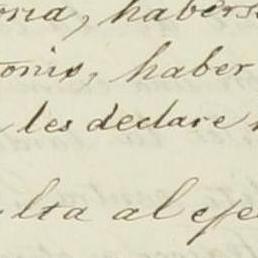 oria, habers
onio, haber
les declare
lta al efe